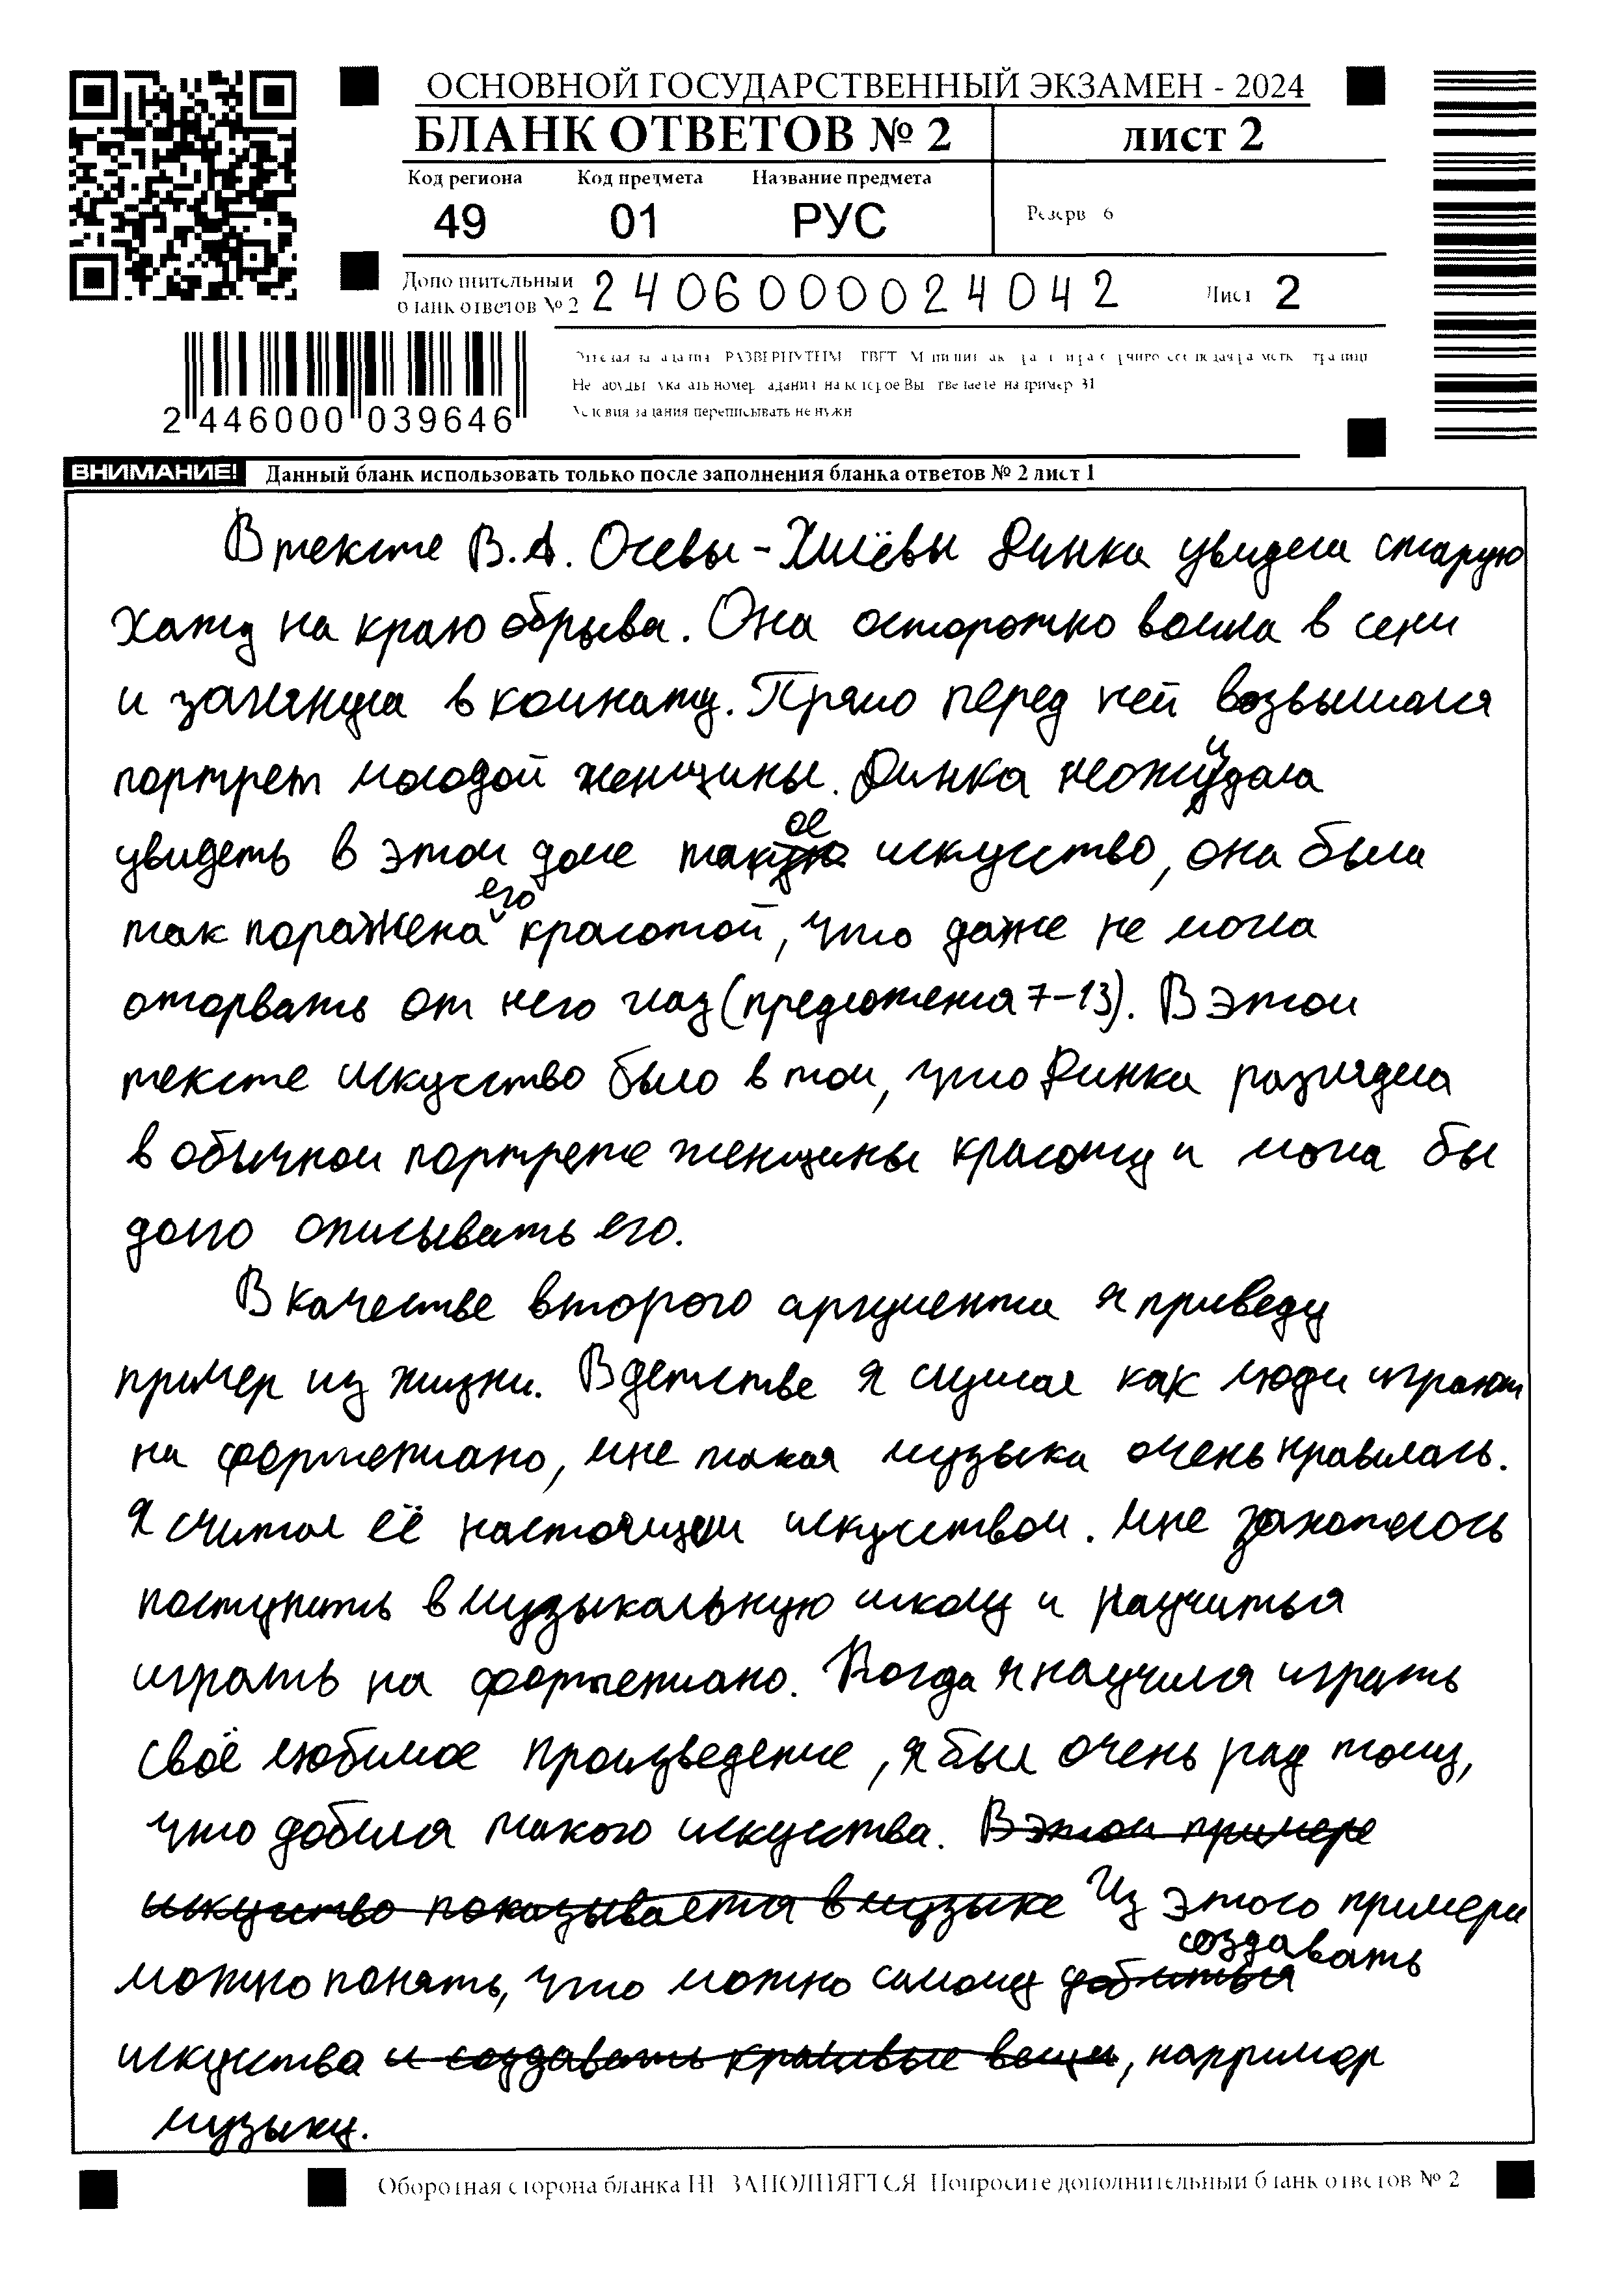 ОСНОВНОЙ ГОСУДАРСТВЕННЫЙ ЭКЗАМЕН - 2024
БЛАНК ОТВЕТОВ № 2 лист 2
Код региона Код предмета Название предмета
49 01 РУС Резерв 6
Дополнительный
бланк ответов № 2 2406000024042 Лист 2
Не забудьте указать номер задания на которое Вы отвечаете например 31
Условия задания переписывать не нужно
2 446000 039646
ВНИМАНИЕ! Данный бланк использовать только после заполнения бланка ответов № 2 лист 1
В тексте В.А. Осевы-Хмелёвы Динка увидела старую
хату на краю обрыва. Она осторожно вошла в сени
и заглянула в комнату. Прямо перед ней возвышался
портрет молодой женщины. Динка неожидала
увидеть в этом доме такое искусство, она была
так поражена его красотой, что даже не могла
оторвать от него глаз (предложения 7-13). В этом
тексте искусство было в том, что Динка разглядела
в обычном портрете женщины красоту и могла бы
долго описывать его.
В качестве второго аргумента я приведу
пример из жизни. В детстве я слушал как люди играют
на фортепиано, мне такая музыка очень нравилась.
Я считал её настоящем искусством. Мне захотелось
поступить в музыкальную школу и научиться
играть на фортепиано. Когда я научился играть
своё любимое произведение, я был очень рад тому,
что добился такого искусства. В этом примере
искусство показывается в музыке Из этого примера
можно понять, что можно самому добиться создавать
искусства и создавать красивые вещи, например
музыку.
Оборотная сторона бланка НЕ ЗАПОЛНЯЕТСЯ Попросите дополнительный бланк ответов № 2